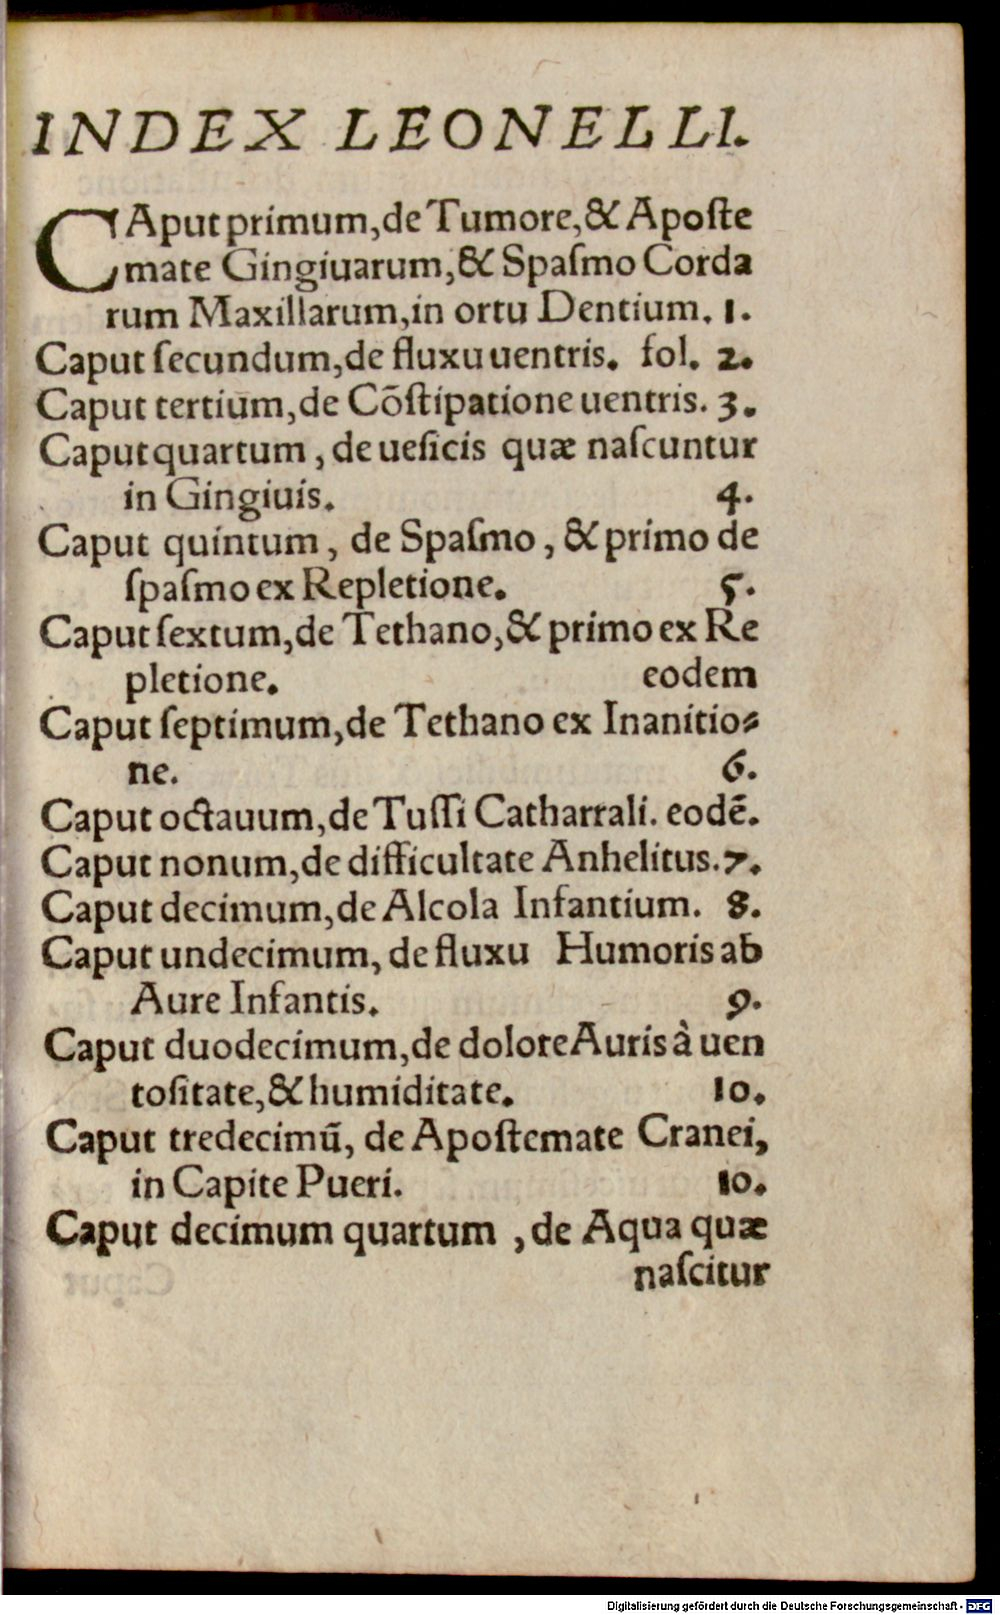 INDEX LEONELLI.
CAput primum, de Tumore, & Apoſte
mate Gingiuarum, & Spaſmo Corda
rum Maxillarum, in ortu Dentium. 1.
Caput ſecundum, de fluxu uentris. fol. 2.
Caput tertium, de Cōſtipatione uentris. 3.
Caput quartum, de ueſicis quæ naſcuntur
in Gingiuis. 4.
Caput quintum, de Spaſmo, & primo de
ſpaſmo ex Repletione. 5.
Caput ſextum, de Tethano, & primo ex Re
pletione. eodem
Caput ſeptimum, de Tethano ex Inanitio⸗
ne. 6.
Caput octauum, de Tuſſi Catharrali. eodē.
Caput nonum, de difficultate Anhelitus. 7.
Caput decimum, de Alcola Infantium. 8.
Caput undecimum, de fluxu Humoris ab
Aure Infantis. 9.
Caput duodecimum, de dolore Auris à uen
toſitate, & humiditate. 10.
Caput tredecimū, de Apoſtemate Cranei,
in Capite Pueri. 10.
Caput decimum quartum, de Aqua quæ
naſcitur
Digitalisierung gefördert durch die Deutsche Forschungsgemeinschaft - DFG